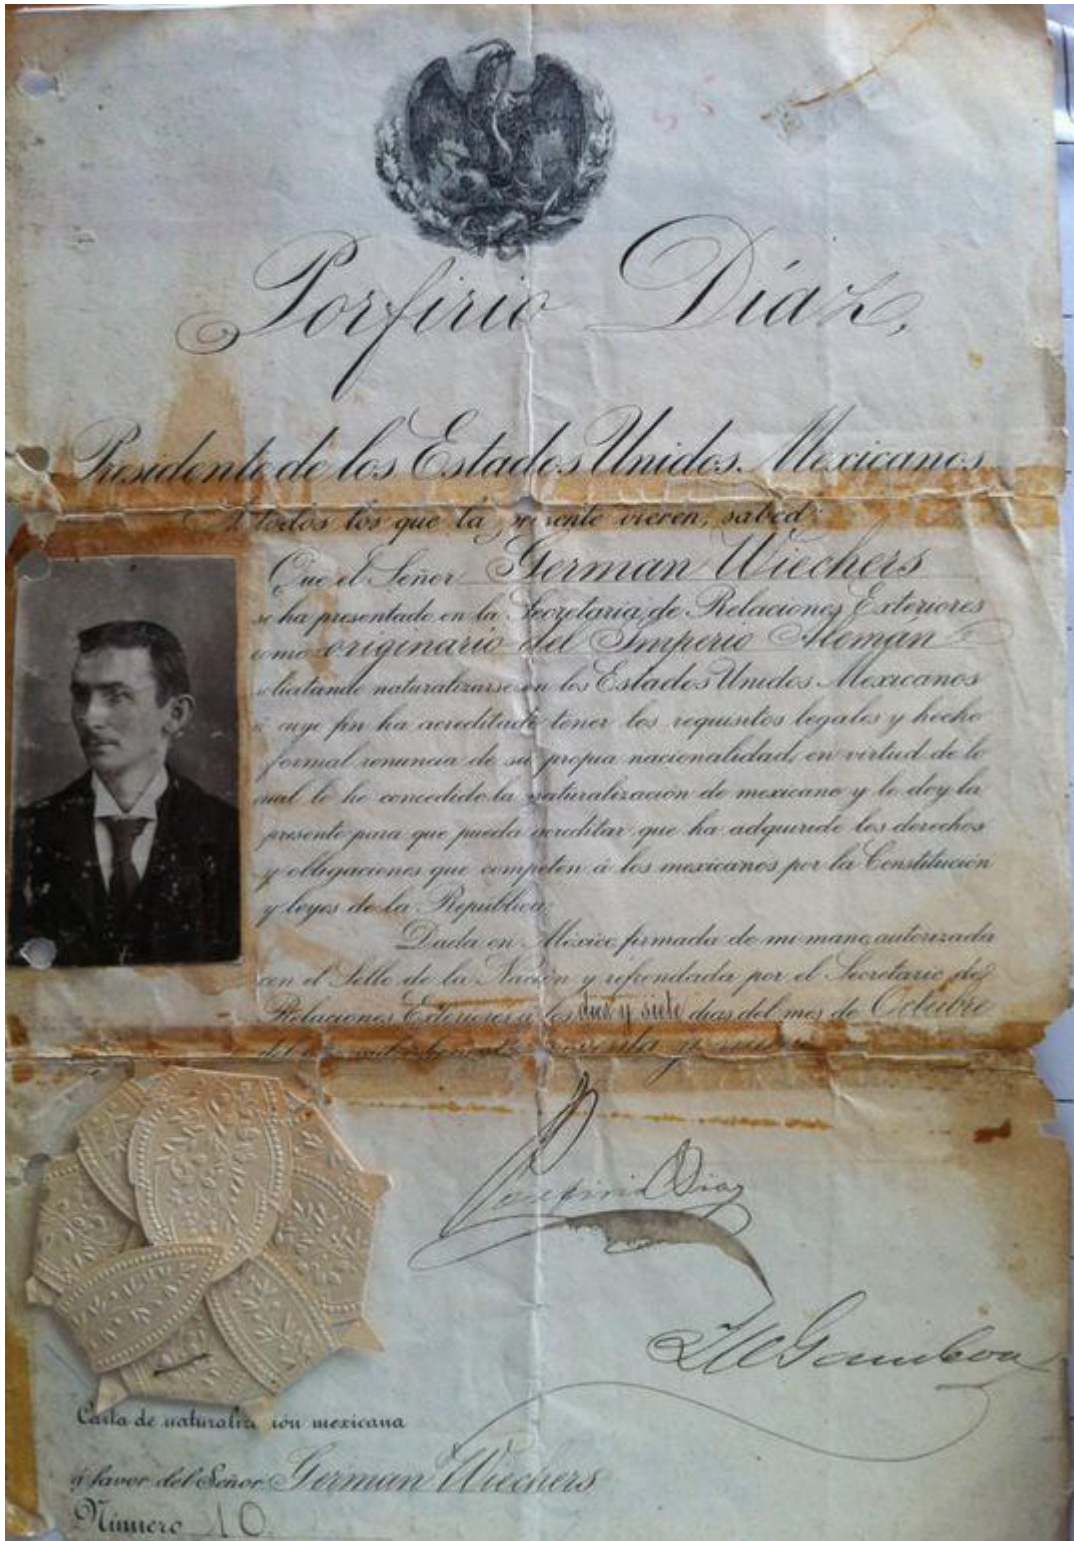 Porfirio Díaz,
Presidente de los Estados Unidos Mexicanos
A todos los que la presente vieren, sabed:
Que el Señor German Wiechers
se ha presentado en la Secretaría de Relaciones Exteriores
como originario del Imperio Alemán
solicitando naturalizarse en los Estados Unidos Mexicanos
á cuyo fin ha acreditado tener los requisitos legales y hecho
formal renuncia de su propia nacionalidad, en virtud de lo
cual le he concedido la naturalización de mexicano y le doy la
presente para que pueda acreditar que ha adquirido los derechos
y obligaciones que competen á los mexicanos por la Constitución
y leyes de la República.
Dada en México, firmada de mi mano, autorizada
con el Sello de la Nación y refrendada por el Secretario de
Relaciones Exteriores á los diez y siete días del mes de Octubre
del noventa y
Porfirio Diaz
Gamboa
Carta de naturaliz ión mexicana
á favor del Señor German Wiechers
Número 10